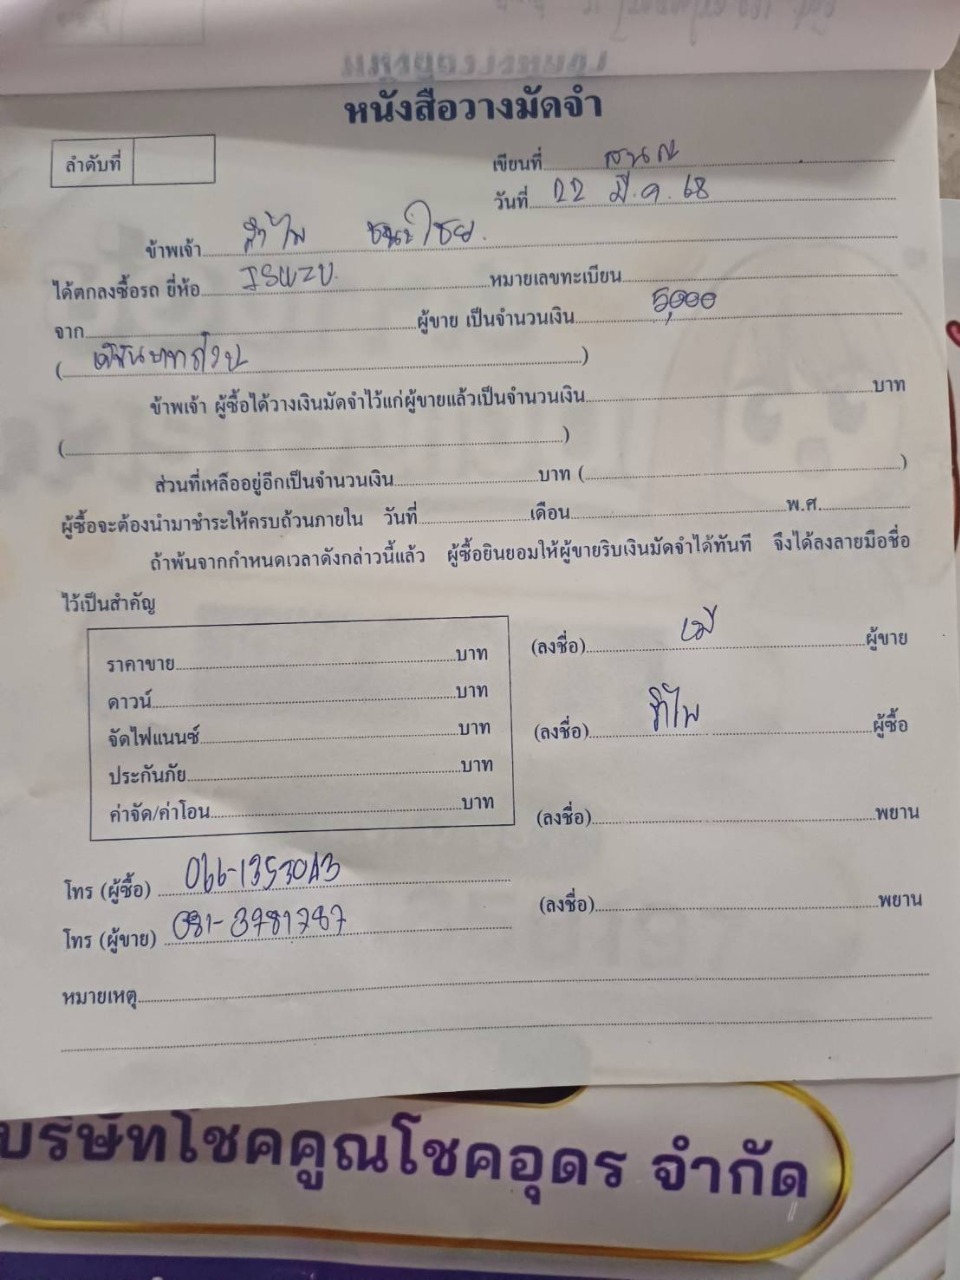 หนังสือวางมัดจำ
ลำดับที่
เขียนที่
วันที่ 22 มี.ค. 68
ข้าพเจ้า
ได้ตกลงซื้อรถ ยี่ห้อ ISUZU. หมายเลขทะเบียน
จาก ผู้ขาย เป็นจำนวนเงิน 5,000
( )
ข้าพเจ้า ผู้ซื้อได้วางเงินมัดจำไว้แก่ผู้ขายแล้วเป็นจำนวนเงิน บาท
( )
ส่วนที่เหลืออยู่อีกเป็นจำนวนเงิน บาท ( )
ผู้ซื้อจะต้องนำมาชำระให้ครบถ้วนภายใน วันที่ เดือน พ.ศ.
ถ้าพ้นจากกำหนดเวลาดังกล่าวนี้แล้ว ผู้ซื้อยินยอมให้ผู้ขายริบเงินมัดจำได้ทันที จึงได้ลงลายมือชื่อ
ไว้เป็นสำคัญ
ราคาขาย บาท
ดาวน์ บาท
จัดไฟแนนซ์ บาท
ประกันภัย บาท
ค่าจัด/ค่าโอน บาท
(ลงชื่อ) เมี ผู้ขาย
(ลงชื่อ) ผู้ซื้อ
(ลงชื่อ) พยาน
(ลงชื่อ) พยาน
โทร (ผู้ซื้อ)
โทร (ผู้ขาย) 081-3781787
หมายเหตุ
บริษัทโชคคูณโชคอุดร จำกัด